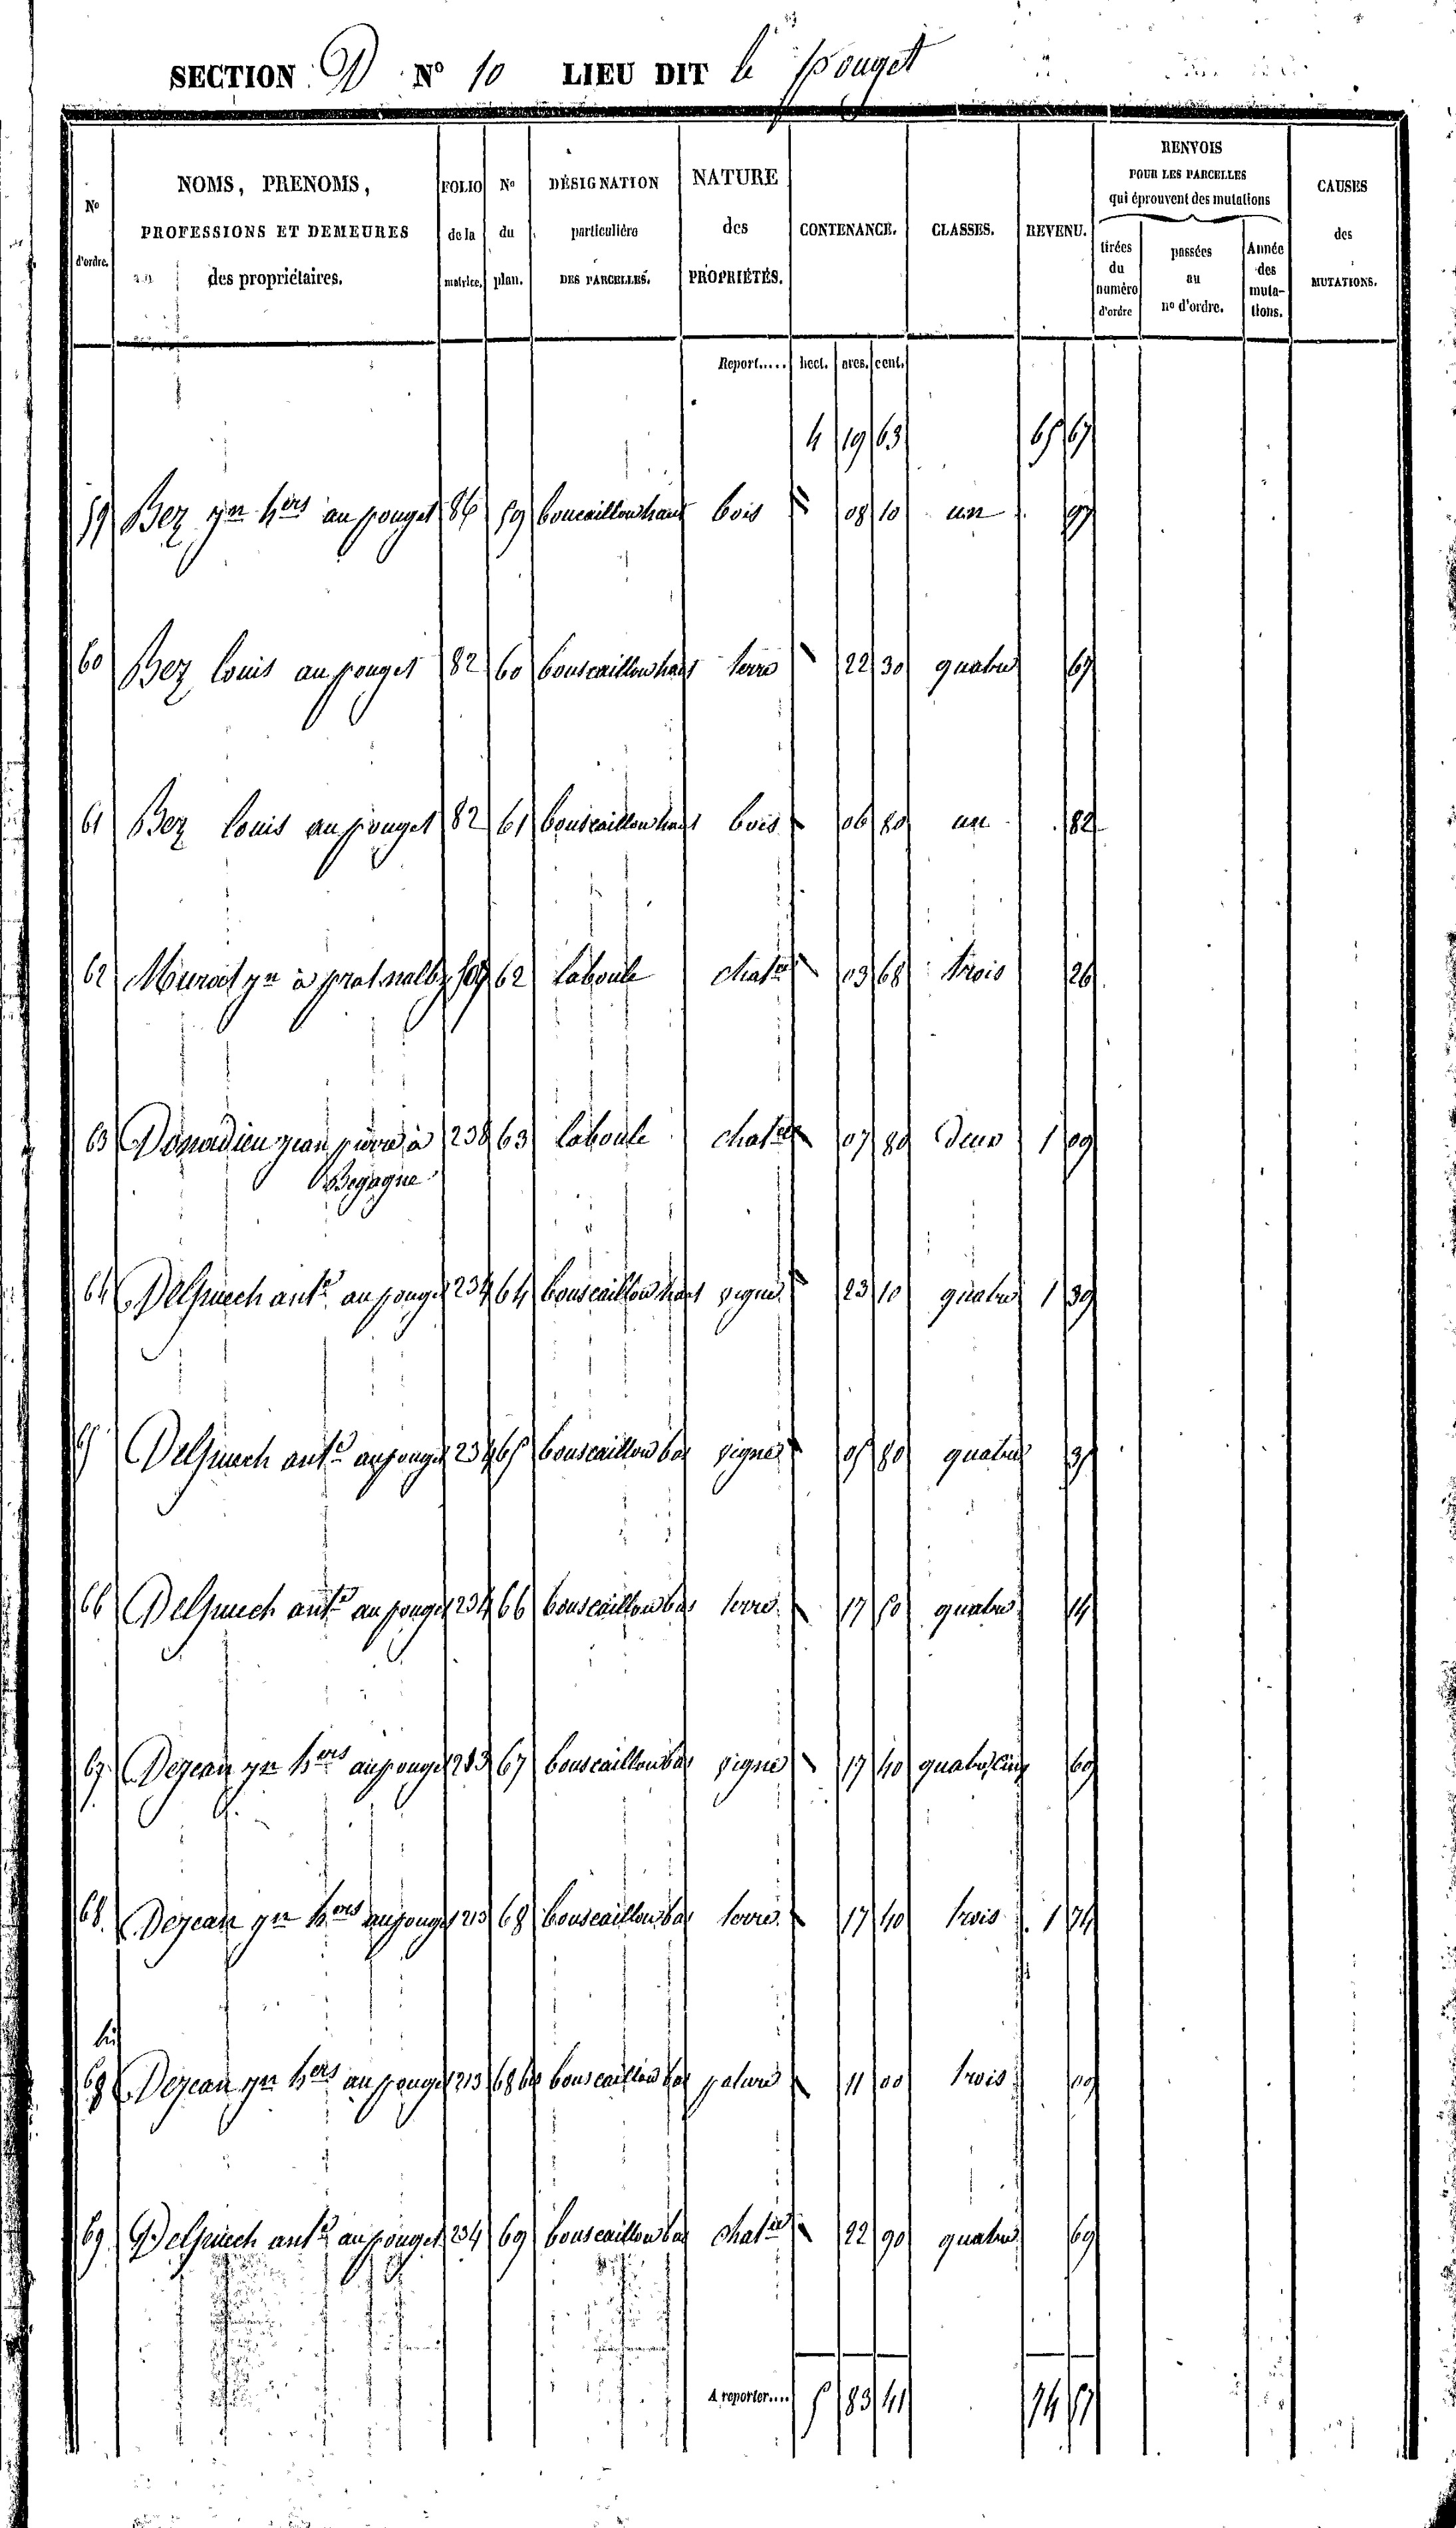 SECTION D N° 10 LIEU DIT le pouget
N° d'ordre. NOMS, PRENOMS, PROFESSIONS ET DEMEURES des propriétaires. FOLIO de la matrice. N° du plan. DÉSIGNATION particulière DES PARCELLES. NATURE des PROPRIÉTÉS. CONTENANCE. CLASSES. REVENU. RENVOIS POUR LES PARCELLES qui éprouvent des mutations tirées du numéro d'ordre passées au n° d'ordre. Année des muta- tions. CAUSES des MUTATIONS.
Report..... hect. ares. cent.
4 19 63 65 67
59 Bez jn hers au pouget 86 59 bouscaillou haut bois 08 10 un 97
60 Bez louis au pouget 82 60 bouscaillou haut terre 22 30 quatre 67
61 Bez louis au pouget 82 61 bouscaillou haut bois 06 80 un 82
62 jn à 62 laboule chater 03 68 trois 26
63 Donadieu jean pierre à 238 63 laboule chater 07 80 deux 1 09
Begagne
64 Delpuech ante au pouget 234 64 bouscaillou haut vigne 23 10 quatre 1 39
65 Delpuech ante au pouget 234 65 bouscaillou bas vigne 05 80 quatre 35
66 Delpuech ante au pouget 234 66 bouscaillou bas terre 17 50 quatre 14
67 Dejean jn hers au pouget 213 67 bouscaillou bas vigne 17 40 quatre, cinq 60
68 Dejean jn hers au pouget 213 68 bouscaillou bas terre 17 40 trois 1 74
bis
68 Dejean jn hers au pouget 213 68 bis bouscaillou bas pature 11 00 trois 09
69 Delpuech ante au pouget 234 69 bouscaillou bas chater 22 90 quatre 69
A reporter.... 5 83 41 74 57